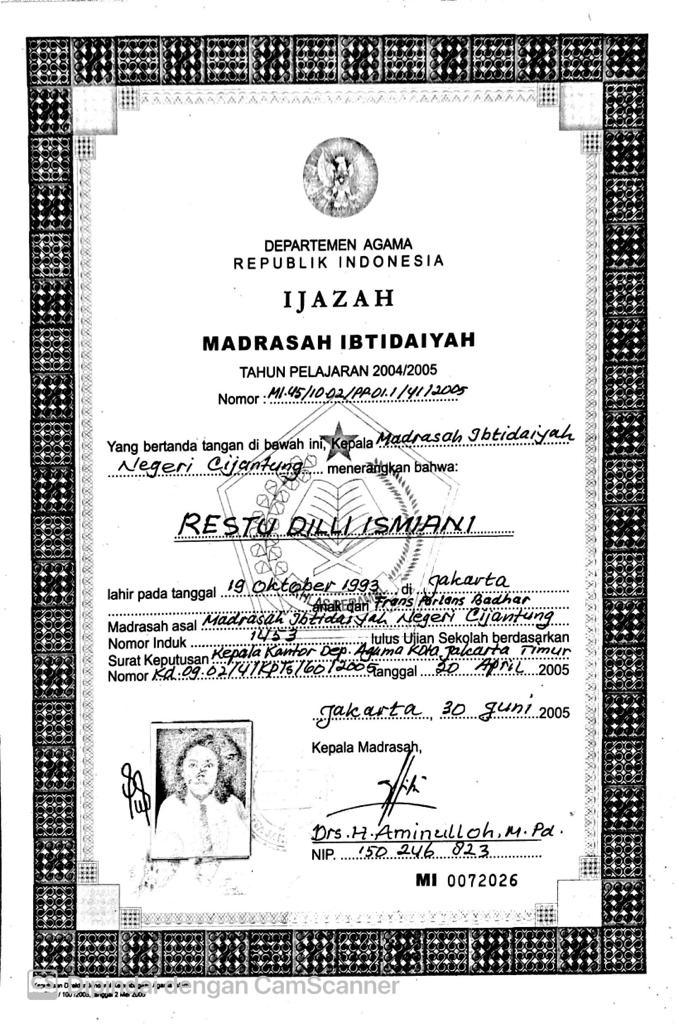 DEPARTEMEN AGAMA
REPUBLIK INDONESIA
IJAZAH
MADRASAH IBTIDAIYAH
TAHUN PELAJARAN 2004/2005
Nomor : MI.45/10.02/PP.01.1/41/2005
Yang bertanda tangan di bawah ini, Kepala Madrasah Ibtidaiyah
Negeri Cijantung menerangkan bahwa:
RESTU DILLI ISMIANI
lahir pada tanggal 19 Oktober 1993 di Jakarta
anak dari Frans Badhar
Madrasah asal Madrasah Ibtidaiyah Negeri Cijantung
Nomor Induk 1453 lulus Ujian Sekolah berdasarkan
Surat Keputusan Kepala Kantor Dep. Agama Kota Jakarta Timur
Nomor Kd.09.02/4/KPTS/60/2005 tanggal 20 April 2005
Jakarta, 30 Juni 2005
Kepala Madrasah,
Drs. H. Aminulloh, M. Pd.
NIP. 150 246 823
MI 0072026
dengan CamScanner
tanggal 2 Mei 2005